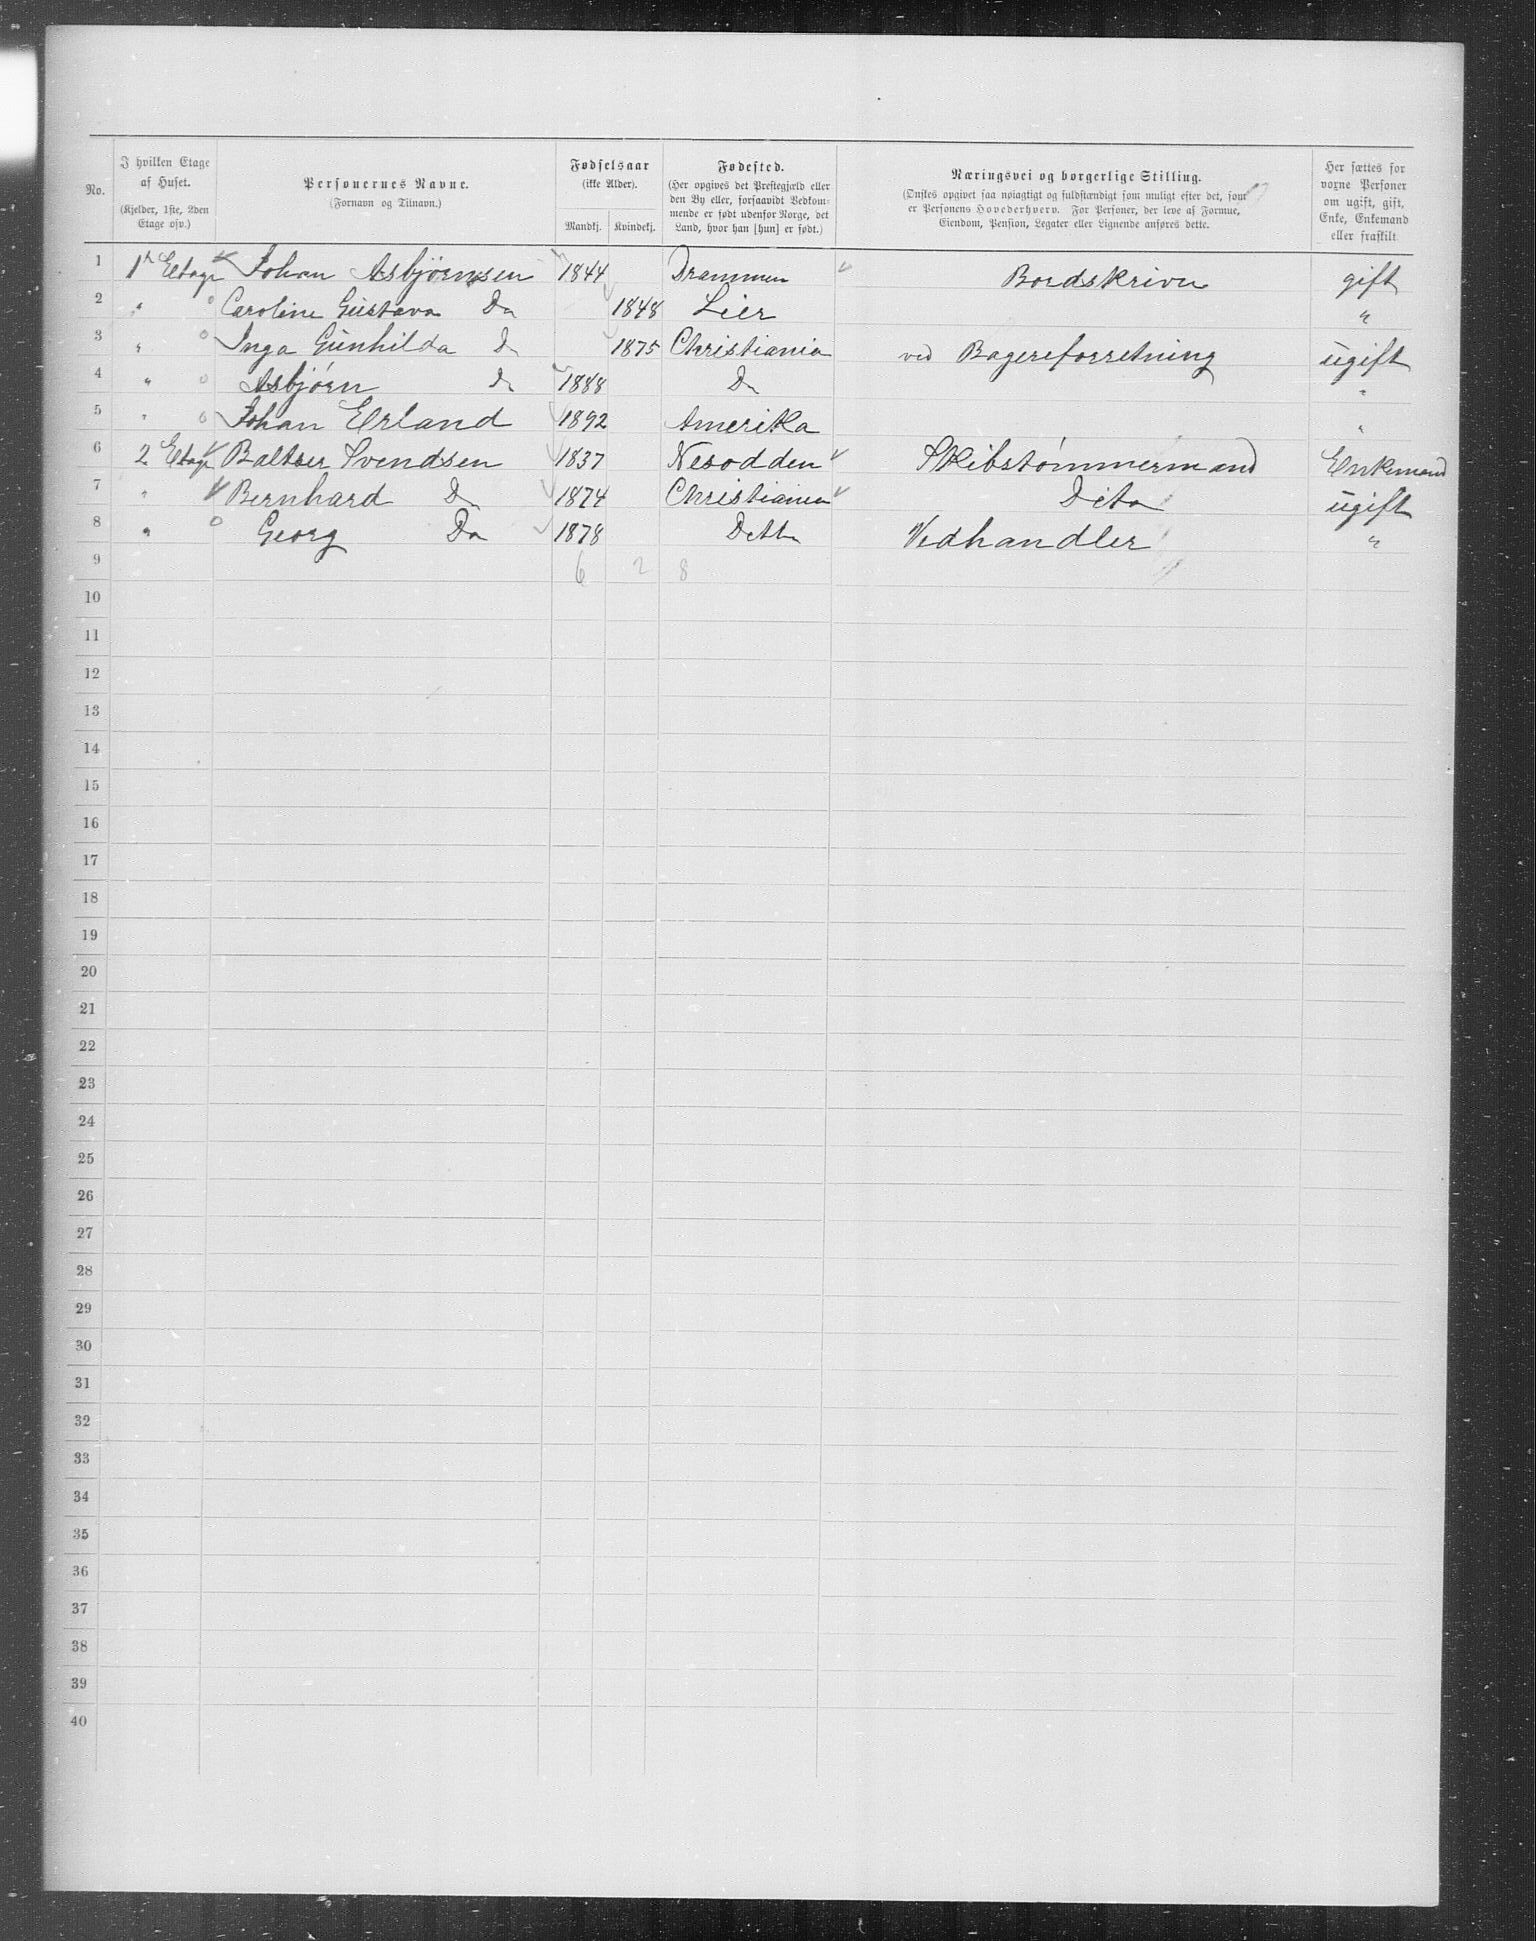 No. | I hvilken Etage af Huset. (Kjelder, 1ste, 2den Etage osv.) | Personernes Navne. (Fornavn og Tilnavn.) | Fødselsaar (ikke Alder). Mandkj. | Kvindekj. | Fødested. (Her opgives det Prestegjæld eller den By eller, forsaavidt Vedkommende er født udenfor Norge, det Land, hvor han [hun] er født.) | Næringsvei og borgerlige Stilling. (Ønskes opgivet saa nøiagtigt og fuldstændigt som muligt efter det, som er Personens Hovederhverv. For Personer, der leve af Formue, Eiendom, Pension, Legater eller Lignende anføres dette. | Her sættes for voxne Personer om ugift, gift, Enke, Enkemand eller fraskilt
1 | 1ste Etage | Johan Asbjørnsen | 1844 | | Drammen | Bordskriver | gift
2 | " | Caroline Gustava Do | | 1848 | Lier | | "
3 | " | Inga Gunhilda Do | | 1875 | Christiania | ved Bagereforretning | ugift
4 | " | Asbjørn Do | 1888 | | Do | | "
5 | " | Johan Erland | 1892 | | Amerika | | "
6 | 2 Etage | Baltser Svendsen | 1837 | | Nesodden | Skibstømmermand | Enkemand
7 | " | Bernhard Do | 1874 | | Christiania | Dito | ugift
8 | " | Georg Do | 1878 | | Ditto | Vedhandler | "
9 | | | 6 | 2 | 8
10
11
12
13
14
15
16
17
18
19
20
21
22
23
24
25
26
27
28
29
30
31
32
33
34
35
36
37
38
39
40